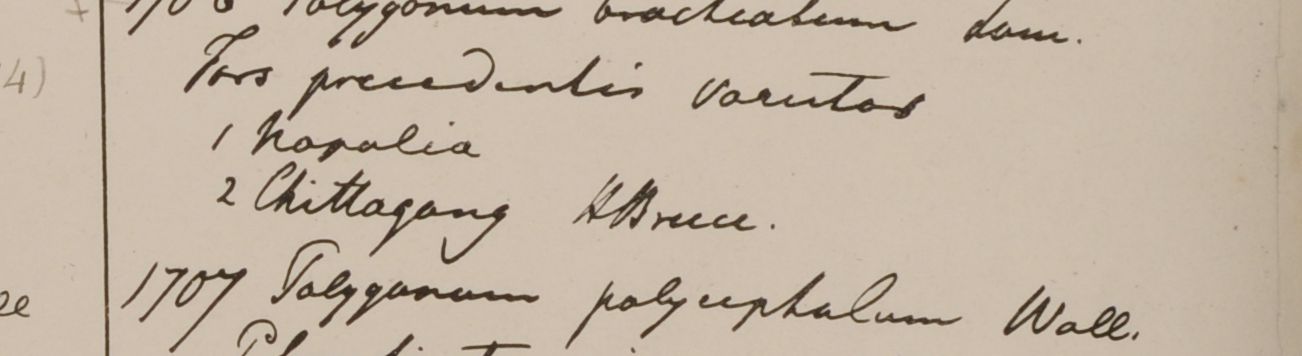 1706 Polygonum bracteatum
4)
Fors precedentis varietas
1 Napalia
2 Chittagong H Bruce.
1707 Polygonum polycephalum Wall.